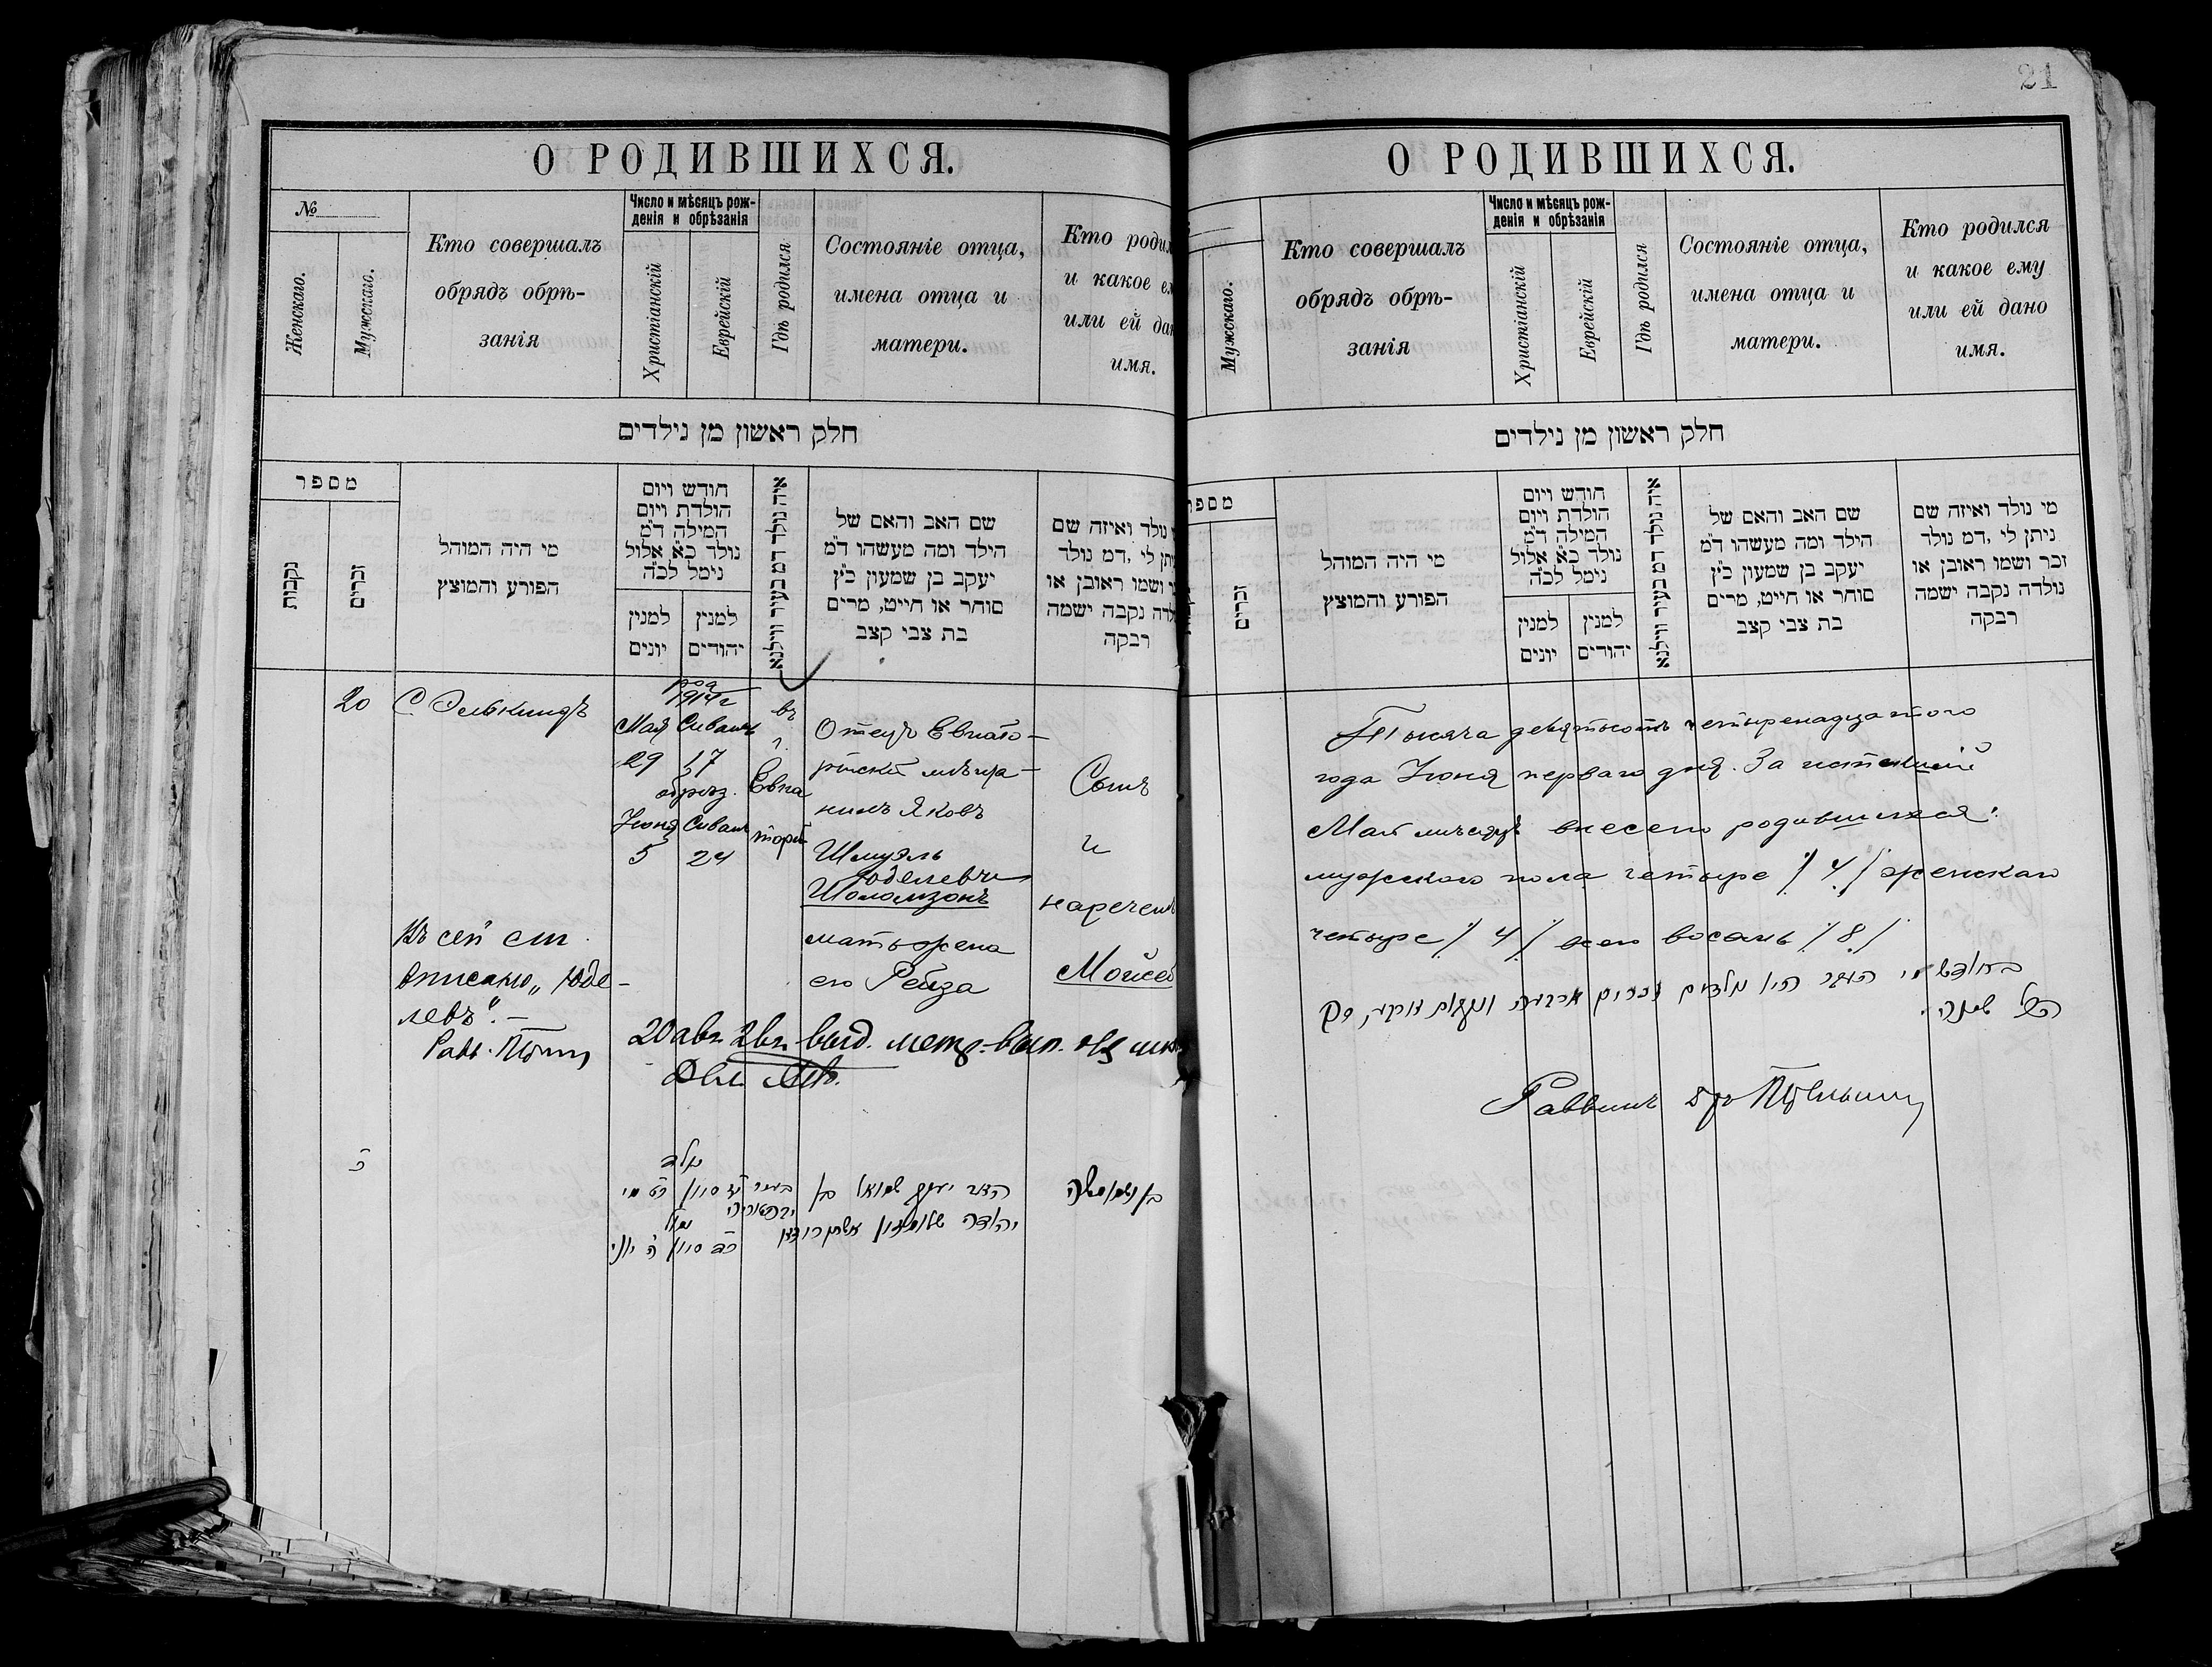 21
О РОДИВШИХСЯ.
№
Женскаго.
Мужскаго.
Кто совершалъ
обрядъ обрѣ-
занія
Число и мѣсяцъ рож-
денія и обрѣзанія
Христіанскій
Еврейскій
Гдѣ родился
Состояніе отца,
имена отца и
матери.
Кто роди
и какое е
или ей да
имя.
חלק ראשון מן נילדים
מספר
נקבות
זכרים
מי היה המוהל
הפורע והמוצץ
חודש ויום
הולדת ויום
המילה ד״מ
נולד כ״א אלול
נימל לכ״ה
למנין
יונים
למנין
יהודים
איה נולד דמ בעיר ווילנא
שם האב והאם של
הילד ומה מעשהו ד״מ
יעקב בן שמעון כ״ץ
סוחר או חייט, מרים
בת צבי קצב
נולד ואיזה שם
יתן לי ,דמ נולד
ושמו ראובן או
לדה נקבה ישמה
רבקה
20
С Элькиндъ
1914 г
Мая Сиванъ
29 17
обрѣз.
Іюня Сиванъ
5 24
въ
г.
Евпа
торіи
Отецъ Евпато-
рійскій мѣща-
нинъ Яковъ
Шмуэль
Юделевъ
Шоломзонъ
мать жена
его Рейза
Сынъ
и
нареченъ
Мойсей
Въ сей ст.
вписано „Юде-
левъ“. —
Рав.
20 авг. выд. метр. вып.
כ
הא׳ יעקב שמואל בן
יהודה שלומזון
בעיר יז סיון כט מי
כד סיון ה יוני
О РОДИВШИХСЯ.
Мужскаго.
Кто совершалъ
обрядъ обрѣ-
занія
Число и мѣсяцъ рож-
денія и обрѣзанія
Христіанскій
Еврейскій
Гдѣ родился
Состояніе отца,
имена отца и
матери.
Кто родился
и какое ему
или ей дано
имя.
חלק ראשון מן נילדים
מספר
זכרים
מי היה המוהל
הפורע והמוצץ
חודש ויום
הולדת ויום
המילה ד״מ
נולד כ״א אלול
נימל לכ״ה
למנין
יונים
למנין
יהודים
איה נולד דמ בעיר ווילנא
שם האב והאם של
הילד ומה מעשהו ד״מ
יעקב בן שמעון כ״ץ
סוחר או חייט, מרים
בת צבי קצב
מי נולד ואיזה שם
ניתן לי ,דמ נולד
זכר ושמו ראובן או
נולדה נקבה ישמה
רבקה
Тысяча девятьсотъ четырнадцатого
года Іюня перваго дня. За истекшій
Май мѣсяцъ внесено родившихся:
мужскаго пола четыре /4/ женскаго
четыре /4/ всего восемь /8/
הכל שמנה.
Раввинъ